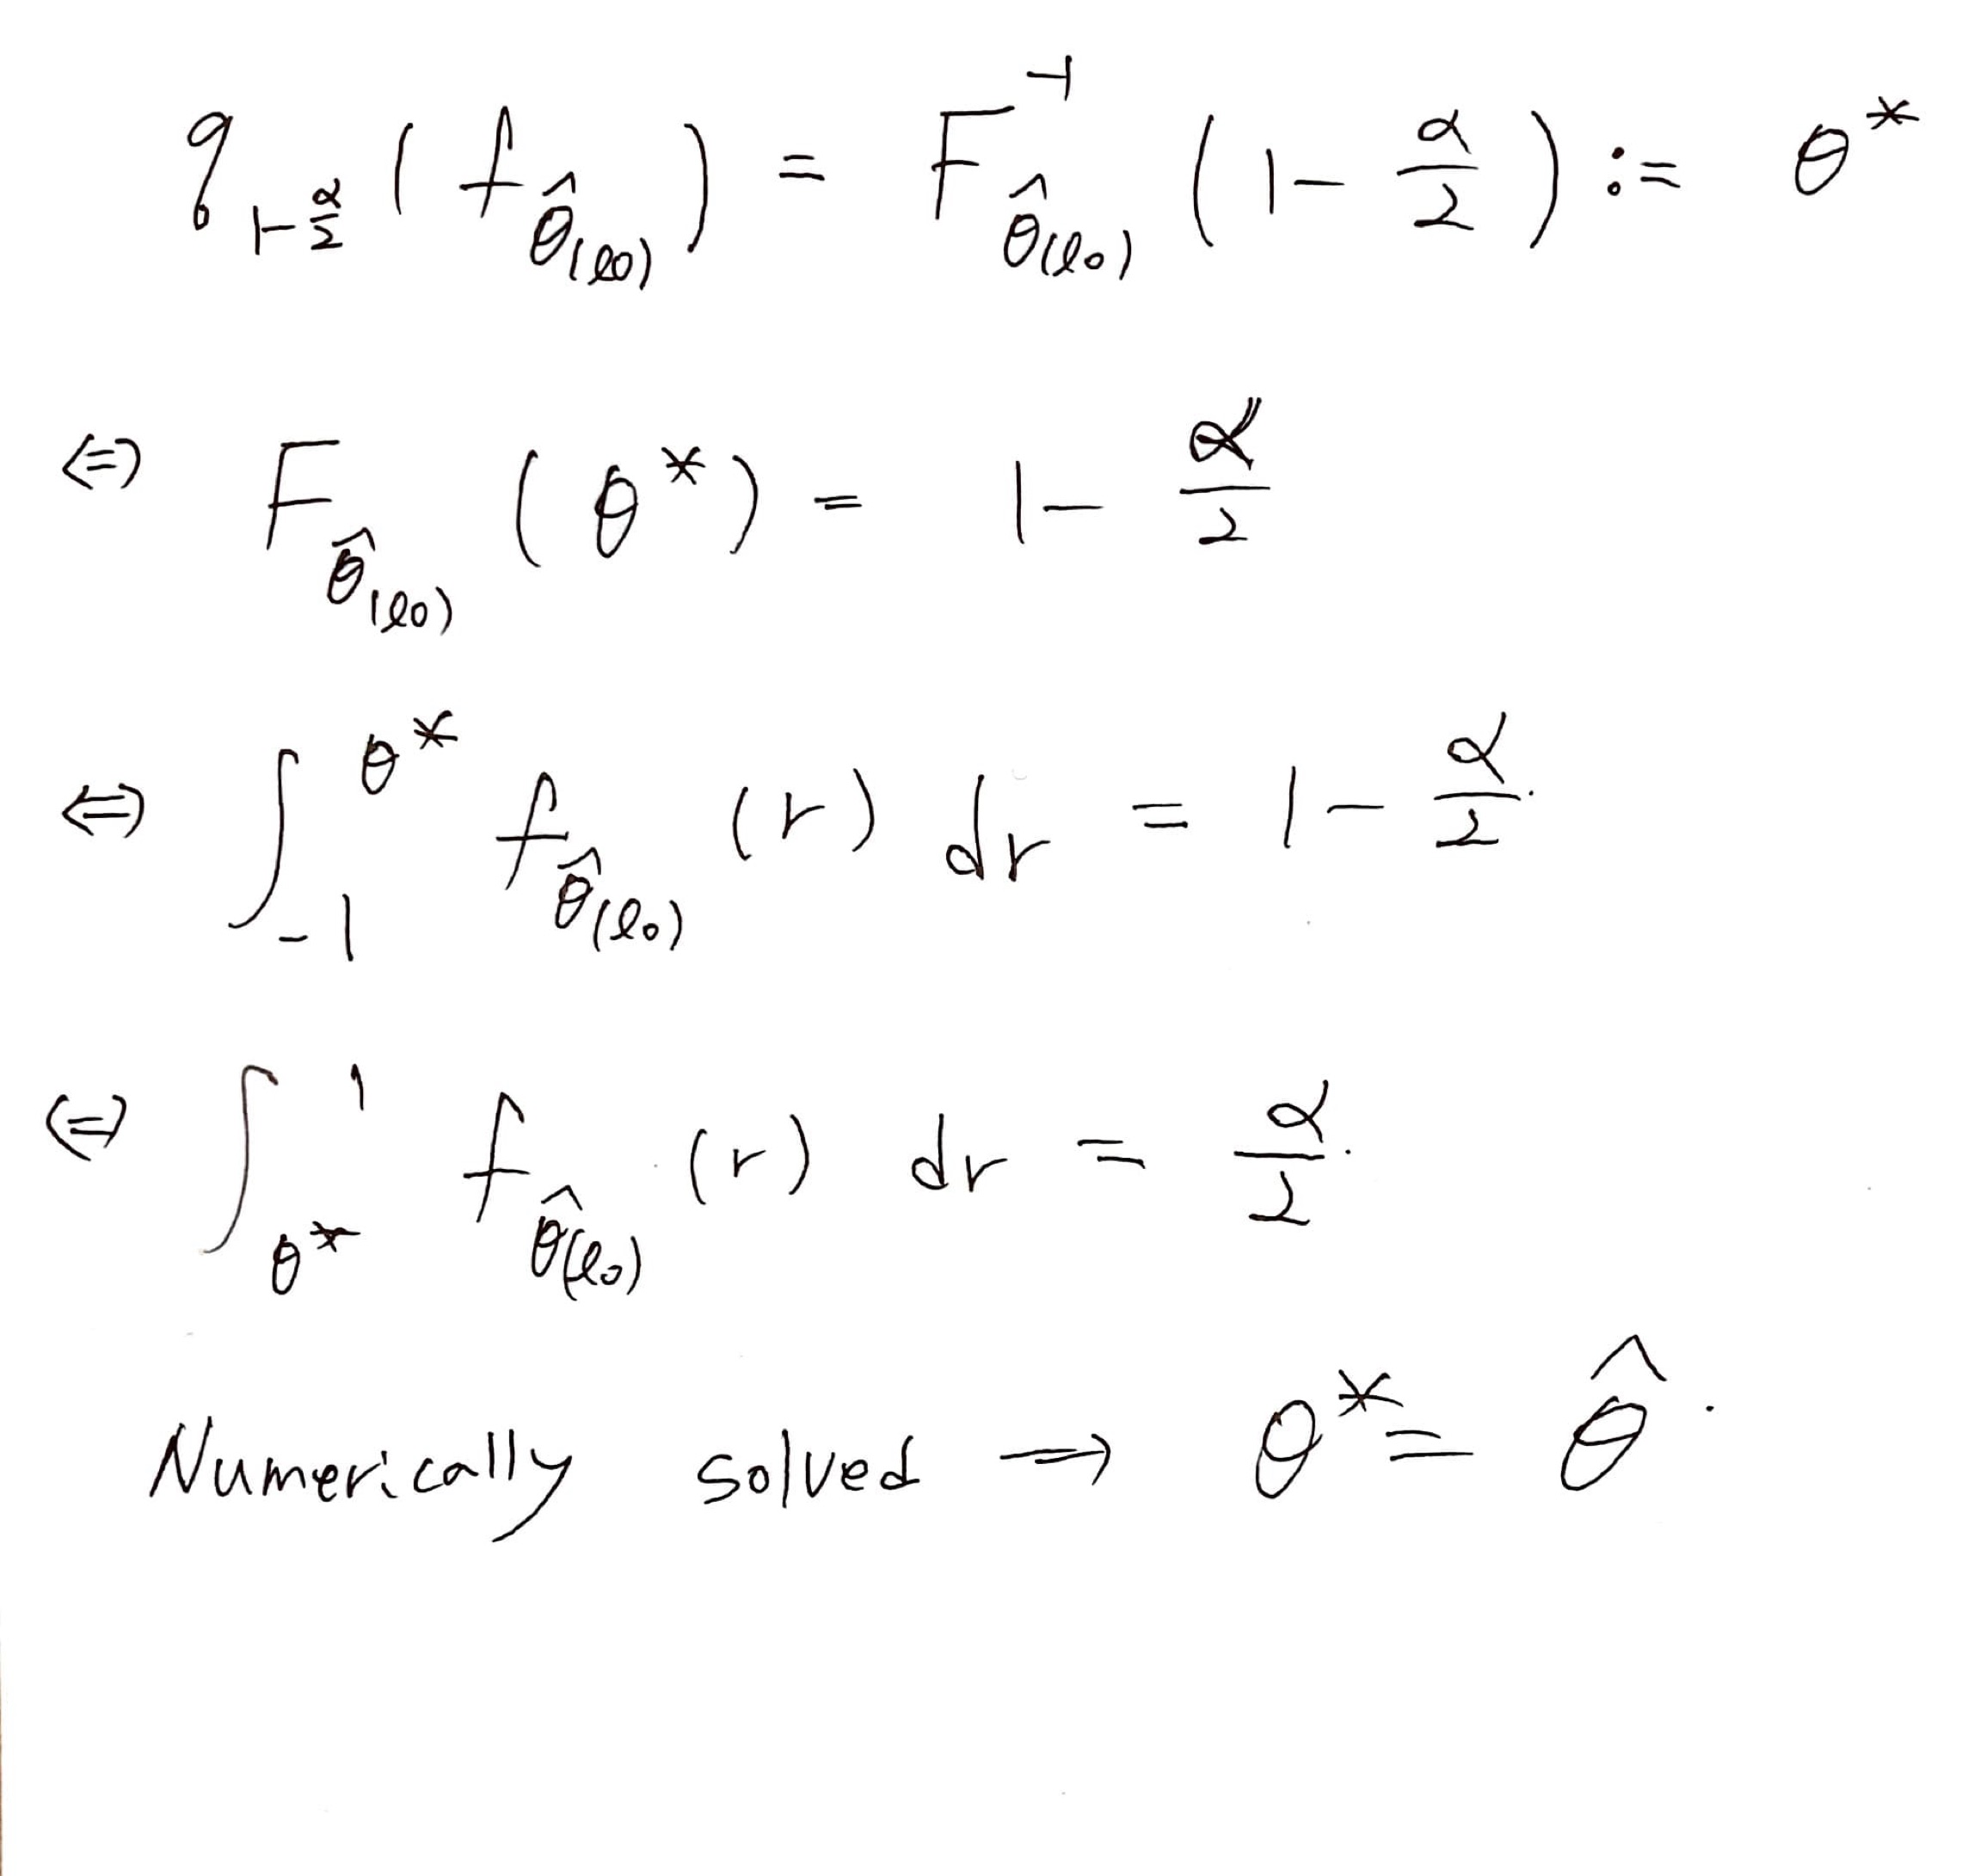 q_{1-\frac{α}{2}} ( f_{\hat{θ}(l_0)} ) = F^{-1}_{\hat{θ}(l_0)} ( 1 - \frac{α}{2} ) := θ^*
⇔ F_{\hat{θ}(l_0)} ( θ^* ) = 1 - \frac{α}{2}
⇔ ∫_{-1}^{θ^*} f_{\hat{θ}(l_0)} (r) dr = 1 - \frac{α}{2}.
⇔ ∫_{θ^*}^{1} f_{\hat{θ}(l_0)} (r) dr = \frac{α}{2}.
Numerically solved ⇒ θ^* = \hat{θ}.